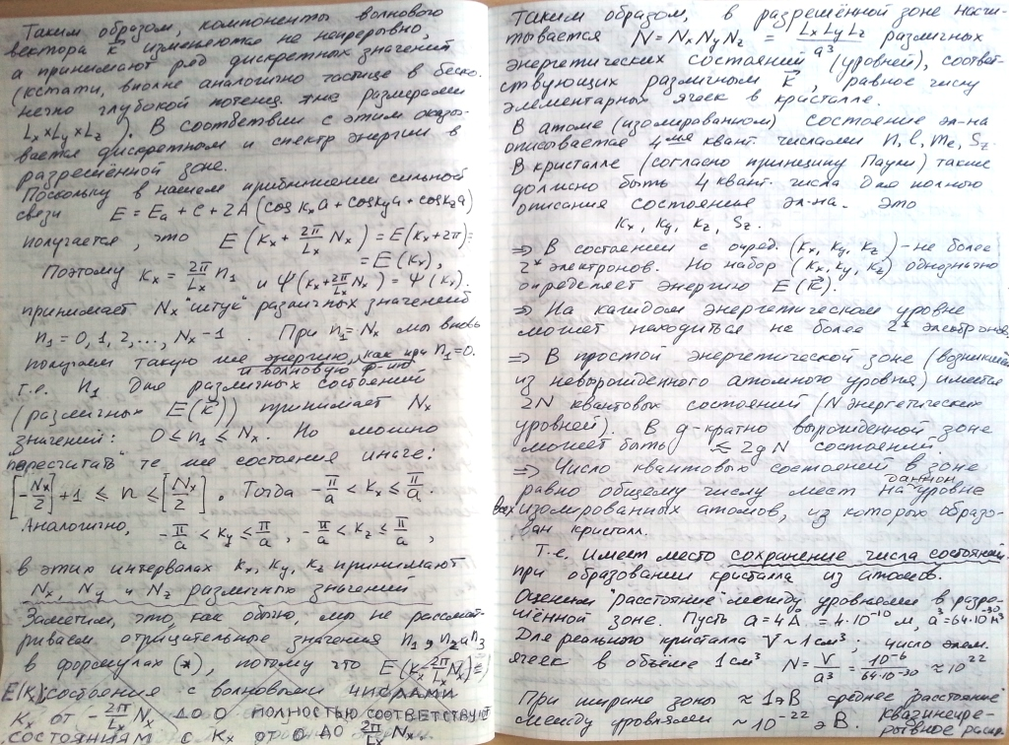 Таким образом, компоненты волнового
вектора k⃗ изменяются не непрерывно,
а принимают ряд дискретных значений
(кстати, вполне аналогично частице в беско-
нечно глубокой потенц. яме размерами
Lx×Ly×Lz). В соответствии с этим оказы-
вается дискретным и спектр энергии в
разрешённой зоне.
Поскольку в нашем приближении сильной
связи E = Ea + C + 2A (cos kxa + cos kya + cos kza)
получается, что E(kx + 2π/Lx Nx) = E(kx+2π) =
= E(kx),
Поэтому kx = 2π/Lx n1 и Ψ(kx + 2π/Lx Nx) = Ψ(kx).
принимает Nx "штук" различных значений
n1 = 0, 1, 2, ..., Nx - 1. При n1 = Nx мы вновь
получаем такую же энергию, как при n1=0.
и волновую ф-ию
т.е. n1 для различных состояний
(различных E(k⃗)) принимает Nx
значений: 0 ≤ n1 ≤ Nx. Но можно
"пересчитать" те же состояния иначе:
[-Nx/2] + 1 ≤ n ≤ [Nx/2]. Тогда -π/a < kx ≤ π/a.
Аналогично, -π/a < ky ≤ π/a, -π/a < kz ≤ π/a,
в этих интервалах kx, ky, kz принимают
Nx, Ny и Nz различных значений
Заметим, что, как обычно, мы не рассмат-
риваем отрицательные значения n1, n2 и n3
в формулах (*), потому что E(kx - 2π/Lx Nx) =
E(k) состояния с волновыми числами
Kx от -2π/Lx Nx до 0 полностью соответствуют
состояниям с Kx от 0 до 2π/Lx Nx.
Таким образом, в разрешённой зоне насчи-
тывается N = NxNyNz = LxLyLz/a³ различных
энергетических состояний (уровней), соответ-
ствующих различным k⃗, равное числу
элементарных ячеек в кристалле.
В атоме (изолированном) состояние эл-на
описывается 4мя квант. числами n, l, me, Sz.
В кристалле (согласно принципу Паули) также
должно быть 4 квант. числа для полного
описания состояние эл-на. Это
kx, ky, kz, Sz.
⇒ В состоянии с опред. (kx, ky, kz) - не более
2х электронов. Но набор (kx, ky, kz) однозначно
определяет энергию E(k⃗).
⇒ На каждом энергетическом уровне
может находиться не более 2х электронов
⇒ В простой энергетической зоне (возникшей
из невырожденного атомного уровня) имеется
2N квантовых состояний (N энергетических
уровней). В g-кратно вырожденной зоне
может быть ≤ 2gN состояний.
⇒ Число квантовых состояний в зоне
равно общему числу мест на данном уровне
всех изолированных атомов, из которых образо-
ван кристалл.
Т.е. имеет место сохранение числа состояний
при образовании кристалла из атомов.
Оценим "расстояние" между уровнями в разре-
шённой зоне. Пусть a = 4Å = 4·10⁻¹⁰ м, a³ = 64·10⁻³⁰ м³
Для реального кристалла V ~ 1 см³; число элем.
ячеек в объёме 1 см³ N = V/a³ = 10⁻⁶/64·10⁻³⁰ ≈ 10²²
При ширине зоны ≈ 1эВ среднее "расстояние"
между уровнями ~ 10⁻²² эВ. Квазинепре-
рывное расп.